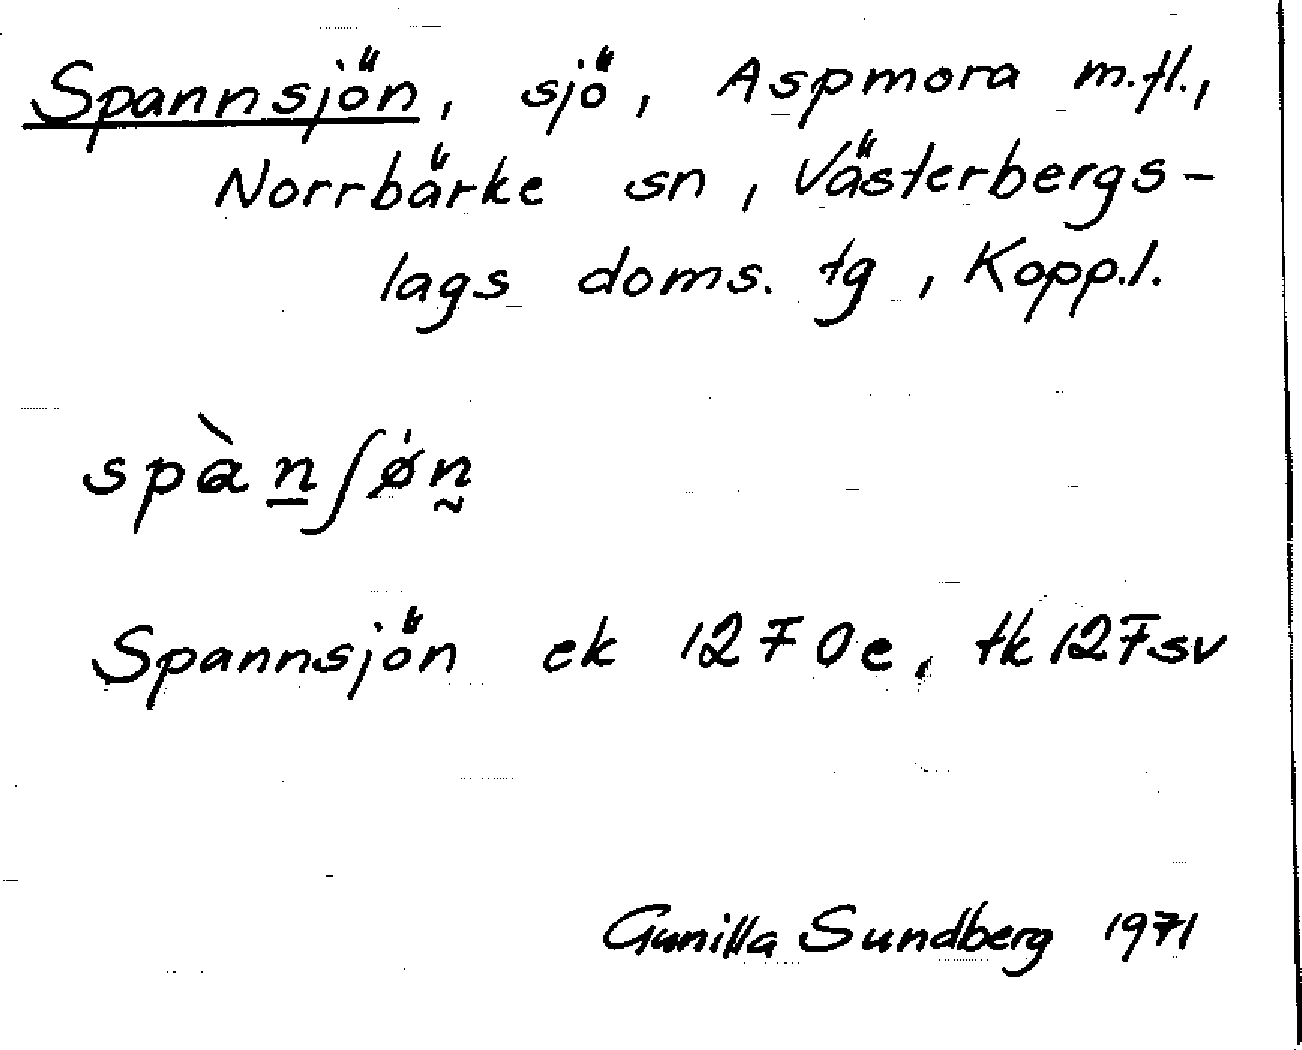 Spannsjön, sjö, Aspmora m.fl.,
Norrbärke sn, Västerbergs-
lags doms. tg, Kopp.l.
spànʃøn
Spannsjön ek 12F 0e, tk 12F sv
Gunilla Sundberg 1971